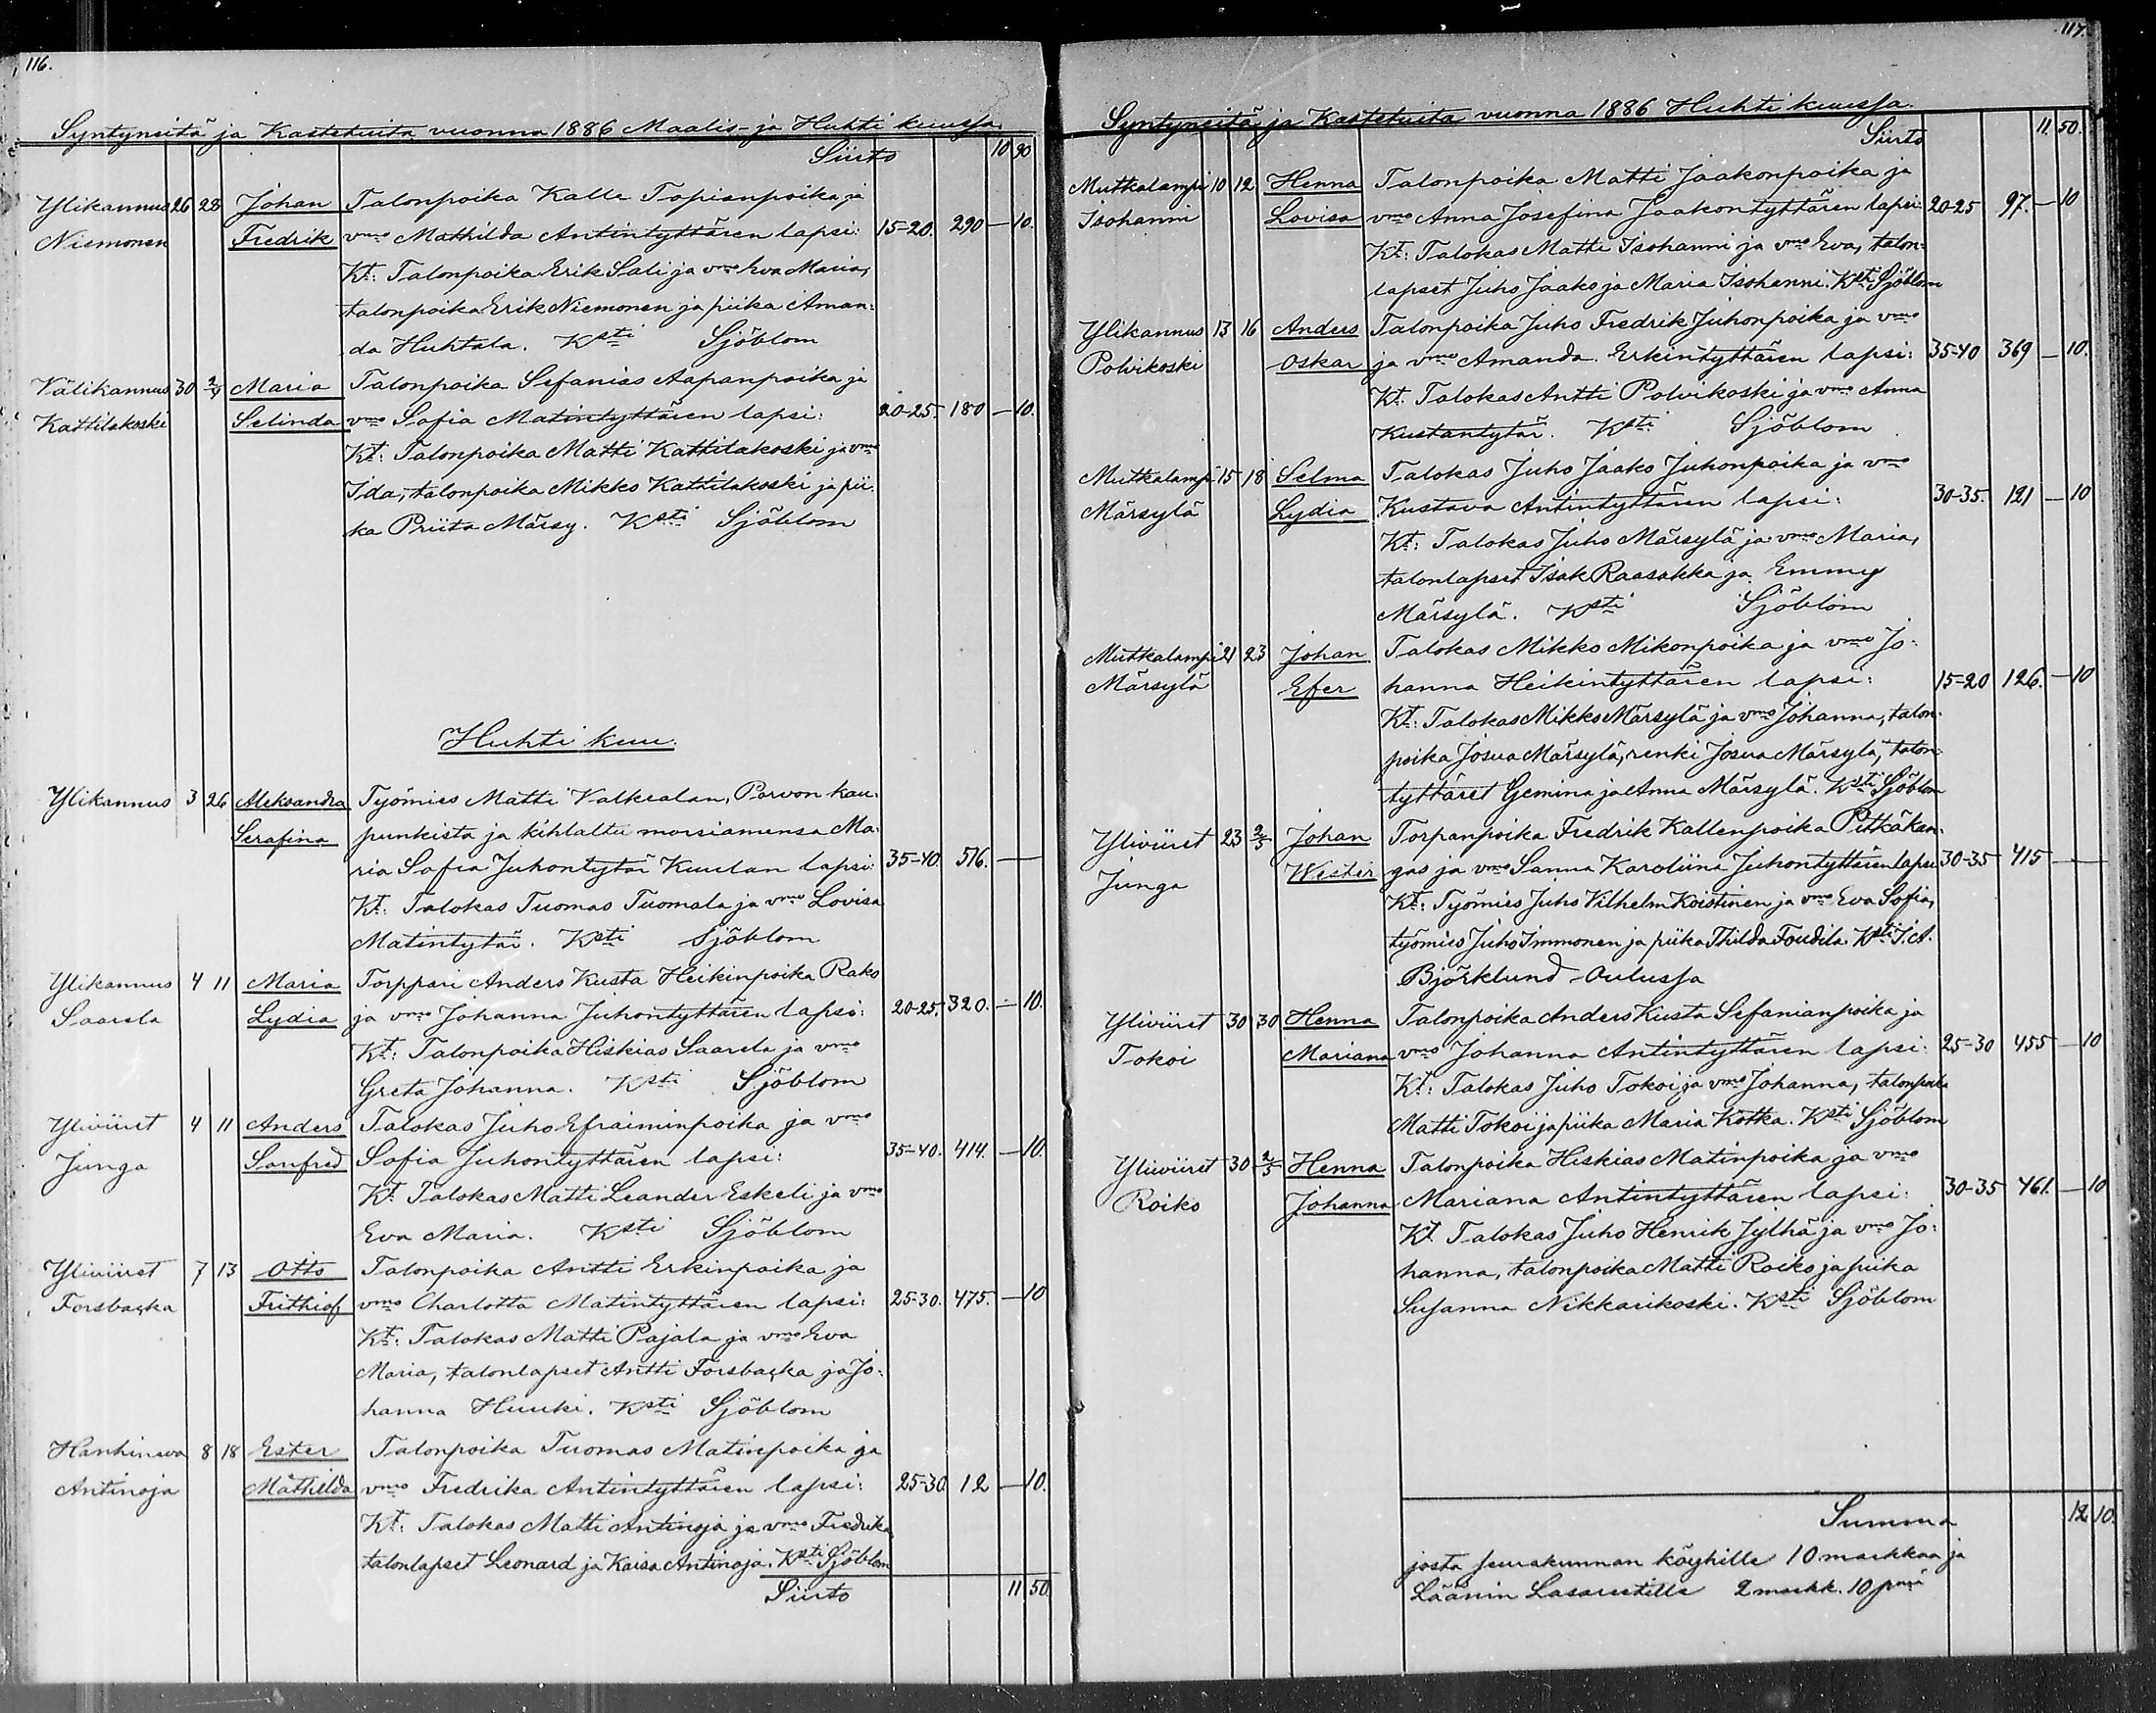 116.
Syntyneitä ja Kastetuita vuonna 1886 Maalis- ja Huhti kuussa.
Siirto 10 90
Ylikannus 26 28 Johan Talonpoika Kalle Topianpoika ja
Niemonen Fredrik vmo Mathilda Antintyttären lapsi: 15-20. 290 — 10.
Kt: Talonpoika Erik Sali ja vmo Eva Maria,
talonpoika Erik Niemonen ja piika Aman-
da Huhtala. Ksti Sjöblom
Välikannus 30 2/4 Maria Talonpoika Sefanias Aapanpoika ja
Kattilakoski Selinda vmo Sofia Matintyttären lapsi: 20-25. 180 — 10.
Kt: Talonpoika Matti Kattilakoski ja vmo
Ida, talonpoika Mikko Kattilakoski ja pii-
ka Priita Märsy. Ksti Sjöblom
Huhti kuu.
Ylikannus 3 26 Aleksandra Työmies Matti Valkealan, Porvon kau-
Serafina punkista ja kihlattu morsiamensa Ma-
ria Sofia Juhontytär Kuulan lapsi: 35-40. 516. —
Kt: Talokas Tuomas Tuomala ja vmo Lovisa
Matintytär. Ksti Sjöblom
Ylikannus 4 11 Maria Torppari Anders Kusta Heikinpoika Rako
Saarela Lydia ja vmo Johanna Juhontyttären lapsi: 20-25. 320. — 10.
Kt: Talonpoika Hiskias Saarela ja vmo
Greta Johanna. Ksti Sjöblom
Yliviiret 4 11 Anders Talokas Juho Efraiminpoika ja vmo
Junga Sanfred Sofia Juhontyttären lapsi: 35-40. 414. — 10.
Kt Talokas Matti Leander Eskeli ja vmo
Eva Maria. Ksti Sjöblom
Yliviiret 7 13 Otto Talonpoika Antti Erkinpoika ja
Forsbacka Frithiof vmo Charlotta Matintyttären lapsi: 25-30. 475. — 10
Kt: Talokas Matti Pajala ja vmo Eva
Maria, talonlapset Antti Forsbacka ja Jo-
hanna Huuki. Ksti Sjöblom
Hanhineva 8 18 Ester Talonpoika Tuomas Matinpoika ja
Antinoja Mathilda vmo Fredrika Antintyttären lapsi: 25-30 12 — 10.
Kt: Talokas Matti Antinoja ja vmo Fredrika,
talonlapset Leonard ja Kaisa Antinoja. Ksti Sjöblom
Siirto 11 50
117.
Syntyneitä ja Kastetuita vuonna 1886 Huhti kuussa.
Siirto 11. 50.
Mutkalampi 10 12 Henna Talonpoika Matti Jaakonpoika ja
Isohanni Lovisa vmo Anna Josefina Jaakontyttären lapsi: 20-25 97. — 10
Kt: Talokas Matti Isohanni ja vmo Eva, talon-
lapset Juho Jaako ja Maria Isohanni. Ksti Sjöblom
Ylikannus 13 16 Anders Talonpoika Juho Fredrik Juhonpoika ja vmo
Polvikoski Oskar ja vmo Amanda Erkintyttären lapsi: 35-40 369 — 10.
Kt. Talokas Antti Polvikoski ja vmo Anna
Kustantytär. Ksti Sjöblom
Mutkalampi 15 18 Selma Talokas Juho Jaako Juhonpoika ja vmo
Märsylä Lydia Kustava Antintyttären lapsi: 30-35. 121 — 10
Kt: Talokas Juho Märsylä ja vmo Maria,
talonlapset Isak Raasakka ja Emmy
Märsylä. Ksti Sjöblom
Mutkalampi 21 23 Johan Talokas Mikko Mikonpoika ja vmo Jo-
Märsylä Efer hanna Heikintyttären lapsi: 15-20 126. — 10
Kt: Talokas Mikko Märsylä ja vmo Johanna, talon-
poika Josua Märsylä, renki Josua Märsylä, talon-
tyttäret Gemina ja Anna Märsylä. Ksti Sjöblom
Yliviiret 23 2/5 Johan Torpanpoika Fredrik Kallenpoika Pitkäkan-
Junga Wester gas ja vmo Sanna Karoliina Juhontyttären lapsi 30-35 415 —
Kt: Työmies Juho Vilhelm Koistinen ja vmo Eva Sofia,
työmies Juho Immonen ja piika Thilda Foudila. Ksti J. A.
Björklund Oulussa
Yliviiret 30 30 Henna Talonpoika Anders Kusta Sefanianpoika ja
Tokoi Mariana vmo Johanna Antintyttären lapsi: 25-30 455 — 10
Kt: Talokas Juho Tokoi ja vmo Johanna, talonpoika
Matti Tokoi ja piika Maria Kotka. Ksti Sjöblom
Yliviiret 30 2/5 Henna Talonpoika Hiskias Matinpoika ja vmo
Roiko Johanna Mariana Antintyttären lapsi: 30-35 461. — 10
Kt. Talokas Juho Henrik Jylhä ja vmo Jo-
hanna, talonpoika Matti Roiko ja piika
Susanna Nikkarikoski. Ksti Sjöblom
Summa 12 10.
josta seurakunnan köyhille 10 markkaa ja
Läänin Lasaretille 2 markk. 10 pniä